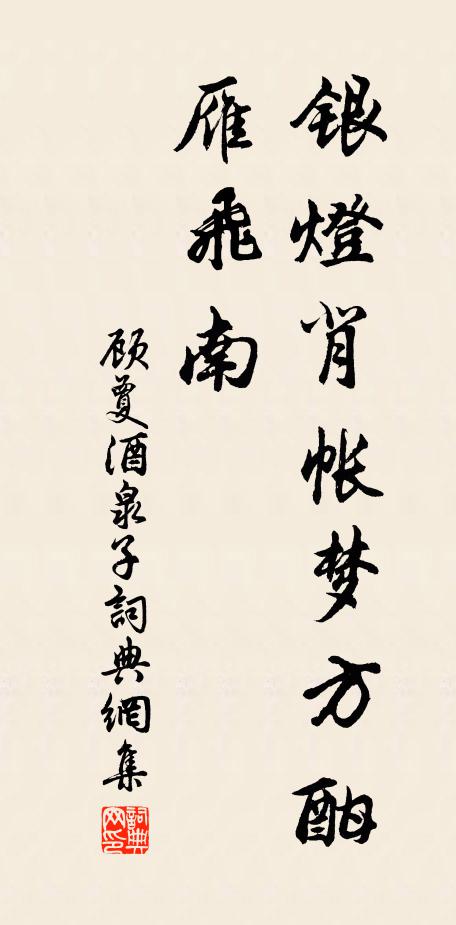 银燈背帐梦方酣
雁飛南
顾夐酒泉子詞典網集
詞典网印